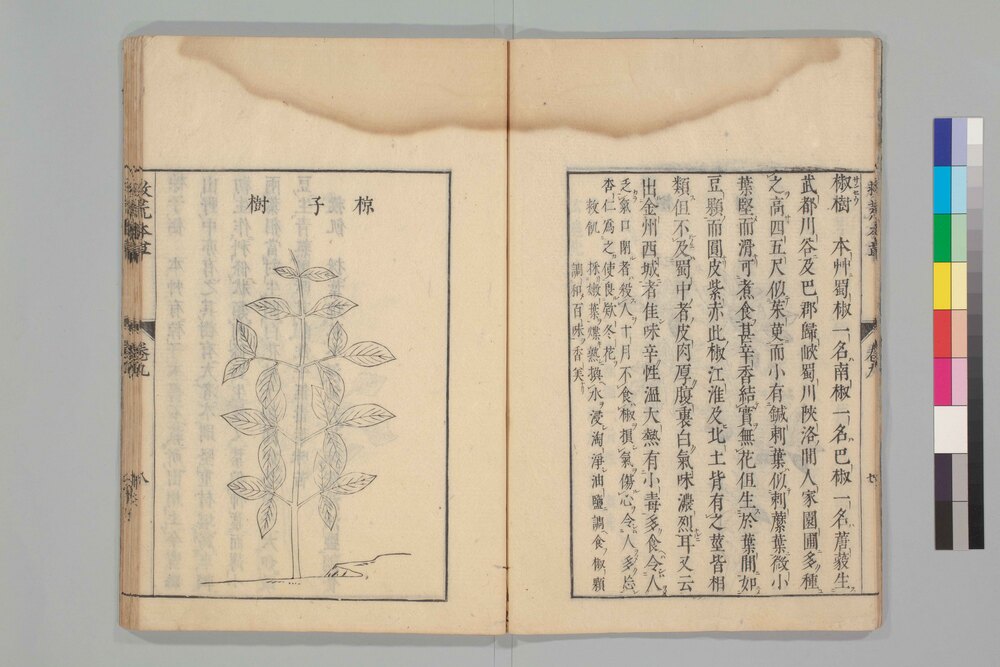 椒樹 本艸蜀椒一名南椒一名巴椒一名蓎藙生
武都川谷及巴郡歸峽蜀川陝洛間人家園圃多種
之高四五尺似茱萸而小有鍼刺葉似刺蘼葉微小
葉堅而滑可煮食甚辛香結實無花但生於葉間如
豆顆而圓皮紫赤此椒江淮及北土皆有之莖皆相
類但不及蜀中者皮肉厚腹裏白氣味濃烈耳又云
出金州西城者佳味辛性溫大熱有小毒多食令人
乏氣口閉者殺人十月不食椒損氣傷心令人多忘
杏仁爲之使畏欵冬花
救飢 採嫩葉煠熟換水浸淘淨油鹽調食椒顆
調和百味香美
椋子樹
救荒本草
卷九
八